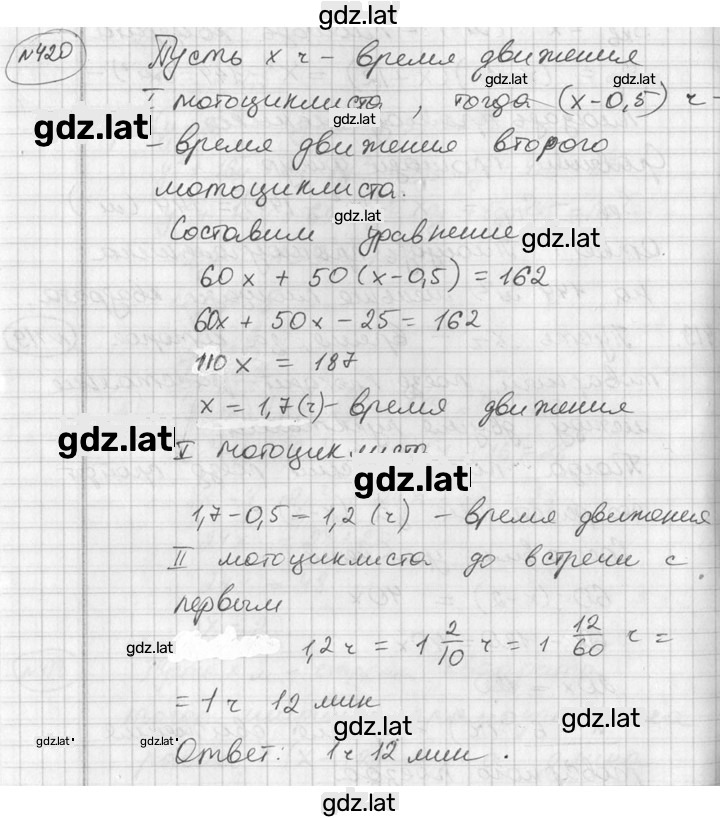 gdz.lat
№420
Пусть х ч - время движения
gdz.lat gdz.lat
I мотоциклиста, тогда (х-0,5) ч -
gdz.lat gdz.lat
- время движения второго
мотоциклиста.
gdz.lat
Составим уравнение
gdz.lat
60х + 50(х-0,5) = 162
60х + 50х - 25 = 162
110х = 187
х = 1,7(ч) - время движения
gdz.lat
I мотоцик
gdz.lat
1,7-0,5 = 1,2 (ч) - время движения
II мотоциклиста до встречи с
первым
gdz.lat
1,2 ч = 1 2/10 ч = 1 12/60 ч =
= 1 ч 12 мин
gdz.lat gdz.lat
gdz.lat gdz.lat
Ответ: 1ч 12 мин.
gdz.lat